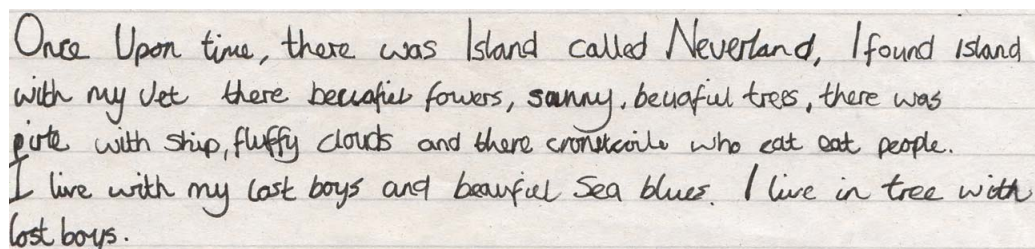 Once Upon time, there was Island called Neverland, I found island
with my Jet there beuafiel fowers, sunny, beuaful trees, there was
pirte with ship, fluffy clouds and there cronstcoile who eat eat people.
I live with my Lost boys and beaufiel Sea blues. I live in tree with
lost boys.